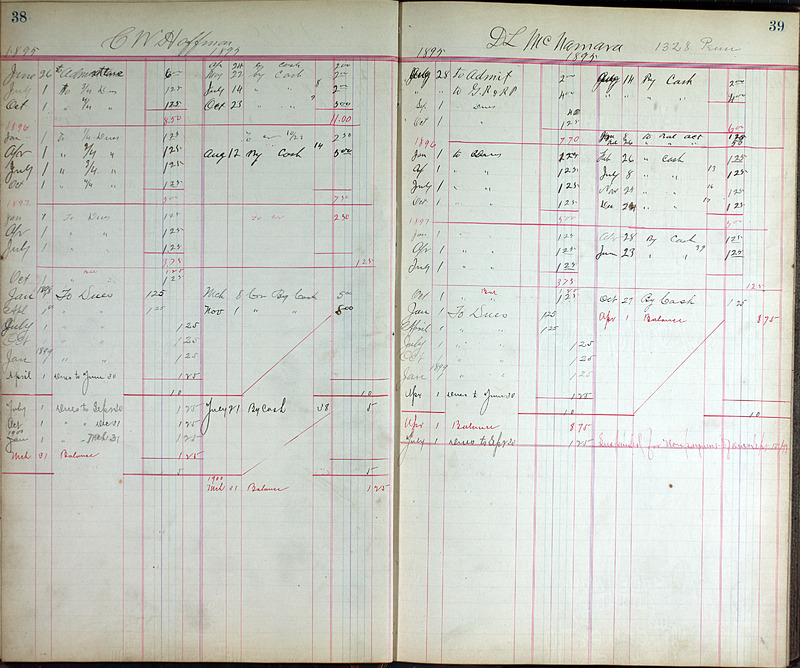 38
C W Hoffman
1895 1895
Apr 24 by Cash 2 00
June 26 6 00 Nov 27 by Cash 2 00
July 1 To 3/4 Dues 1 25 July 14 " " 8 2 00
Oct 1 " 4/4 " 1 25 Oct 23 " " 9 5 00
8 50 11.00
1896
Jan 1 To 1/4 Dues 1 25 2 50
Apr 1 " 2/4 " 1 25 Aug 12 By Cash 14 5 00
July 1 " 3/4 " 1 25
Oct 1 " 4/4 " 1 25
5 00 7 50
1897
Jan 1 To Dues 1 25 To cr 2 50
Apr 1 " " 1 25
July 1 " " 1 25
3 75 1 25
Bal 1 25
Oct 1 " " 1 25
Jan 1898 1 To Dues 1 25 Mch 8 Cr By Cash 5 00
Apl 1 " " 1 25 Nov 1 " " 5 00
July 1 " " 1 25
Oct 1 " " 1 25
Jan 1899 " " 1 25
April 1 dues to June 30 1 25
10 10
July 1 dues to Sept 30 1 25 July 21 By Cash 58 5
Oct 1 " " Dec 31 1 25
1900
Jan 1 " " Mch 31 1 25
Mch 31 Balance 1 25
5 5
1900
Mch 31 Balance 1 25
39
D L McNamara 1328 Penn
1895 1895
July 28 To Admit 2 00 Aug 14 By Cash 2 00
" " To G.R & R.P 4 00 " " " " 4 00
Sept 1 " Dues
Oct 1 " " 1 25 6 00
7 70
1896
Jan 1 To Dues 1 25 Feb 26 " Cash 1 25
Ap 1 " " 1 25 July 8 " " 13 1 25
July 1 " " 1 25 Nov 25 " " 16 1 25
Oct 1 " " 1 25 Dec 29 " " 17 1 25
5 00 5 00
1897
Jan 1 " " 1 25 Apr 28 By Cash 1 25
Apr 1 " " 1 25 Jun 23 " " 1 25
July 1 " " 1 25
3 75 1 25
Bal 1 25
Oct 1 " " 1 25 Oct 27 By Cash 1 25
Jan 1 To Dues 1 25 Apr 1 Balance 8 75
April 1 " " 1 25
July 1 " " 1 25
Oct 1 " " 1 25
Jan 1899 " " 1 25
Apr 1 dues to June 30 1 25
10 10
Apr 1 Balance 8 75
July 1 dues to Sept 30 1 25 Suspended for Non payment